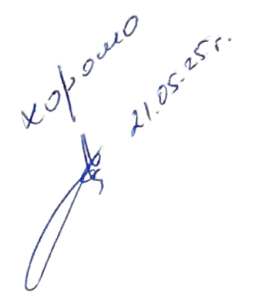 хорошо
21.05.25 г.